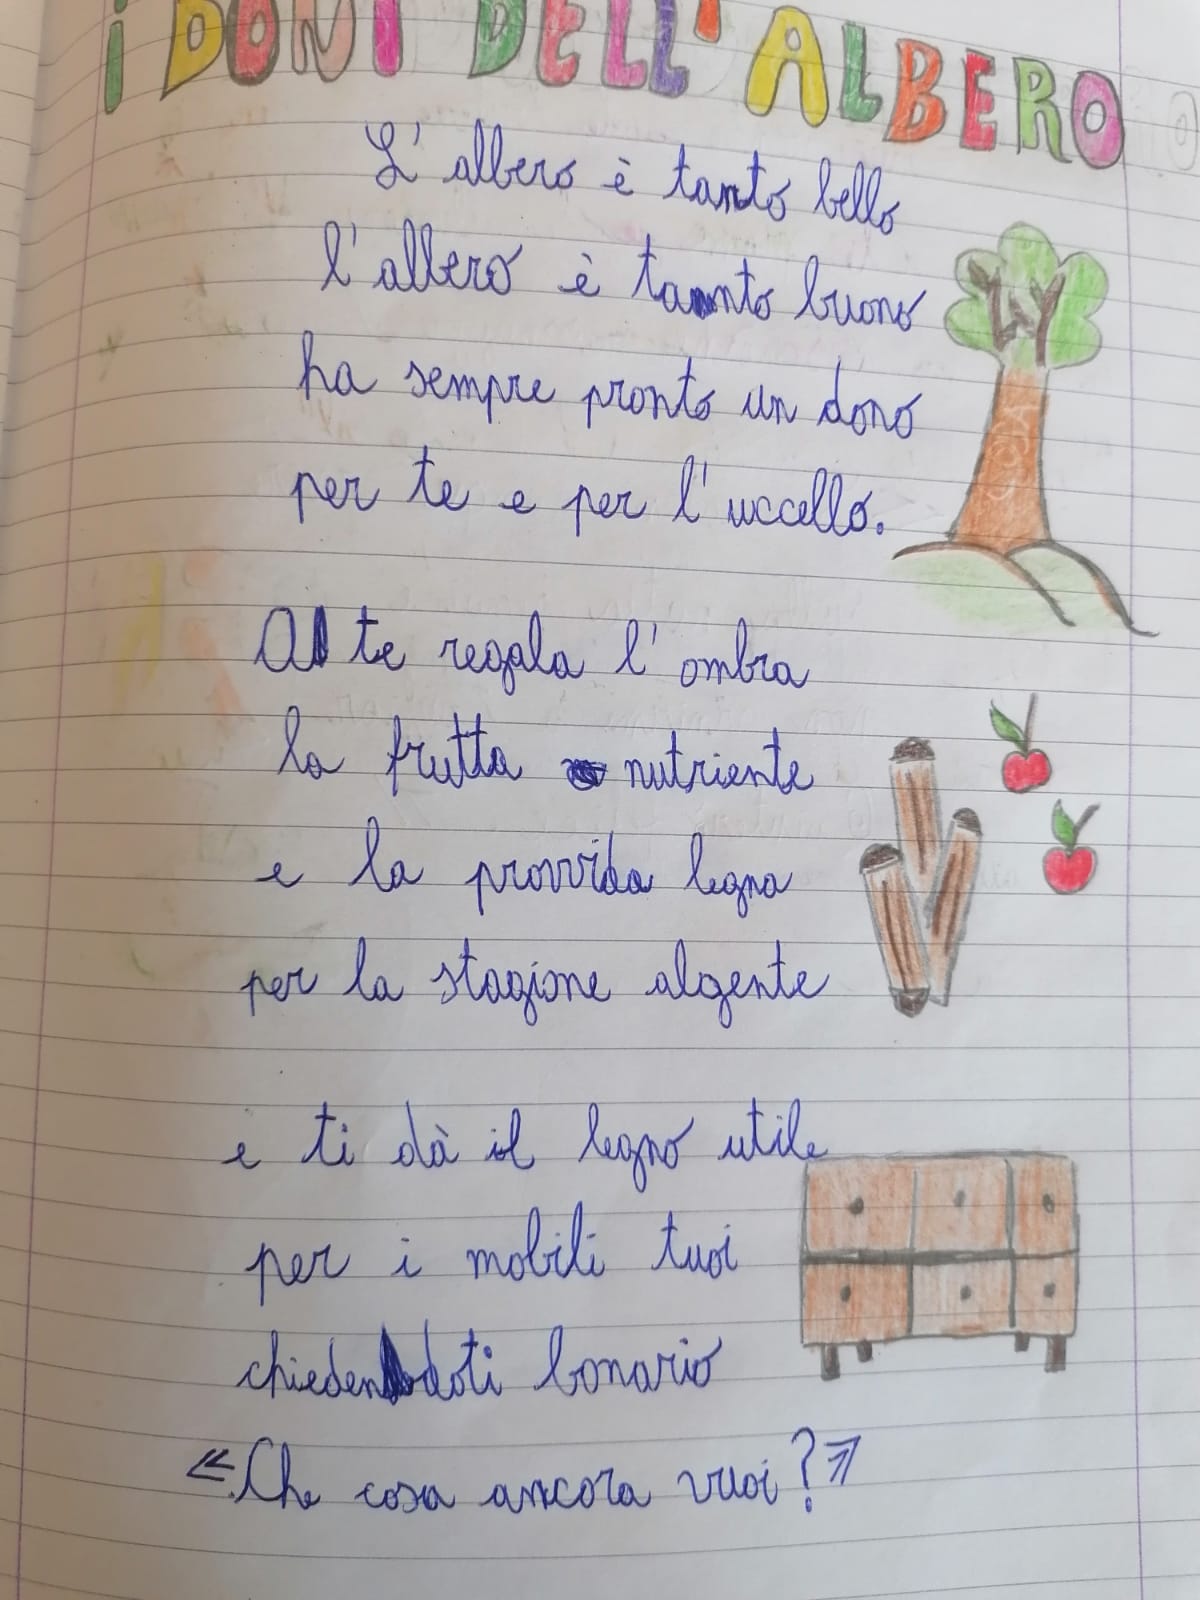 I DONI DELL'ALBERO
L'albero è tanto bello
l'albero è tanto buono
ha sempre pronto un dono
per te e per l'uccello.
A te regala l'ombra
la frutta nutriente
e la provvida legna
per la stagione algente
e ti dà il legno utile
per i mobili tuoi
chiedendoti bonario
«Che cosa ancora vuoi?»